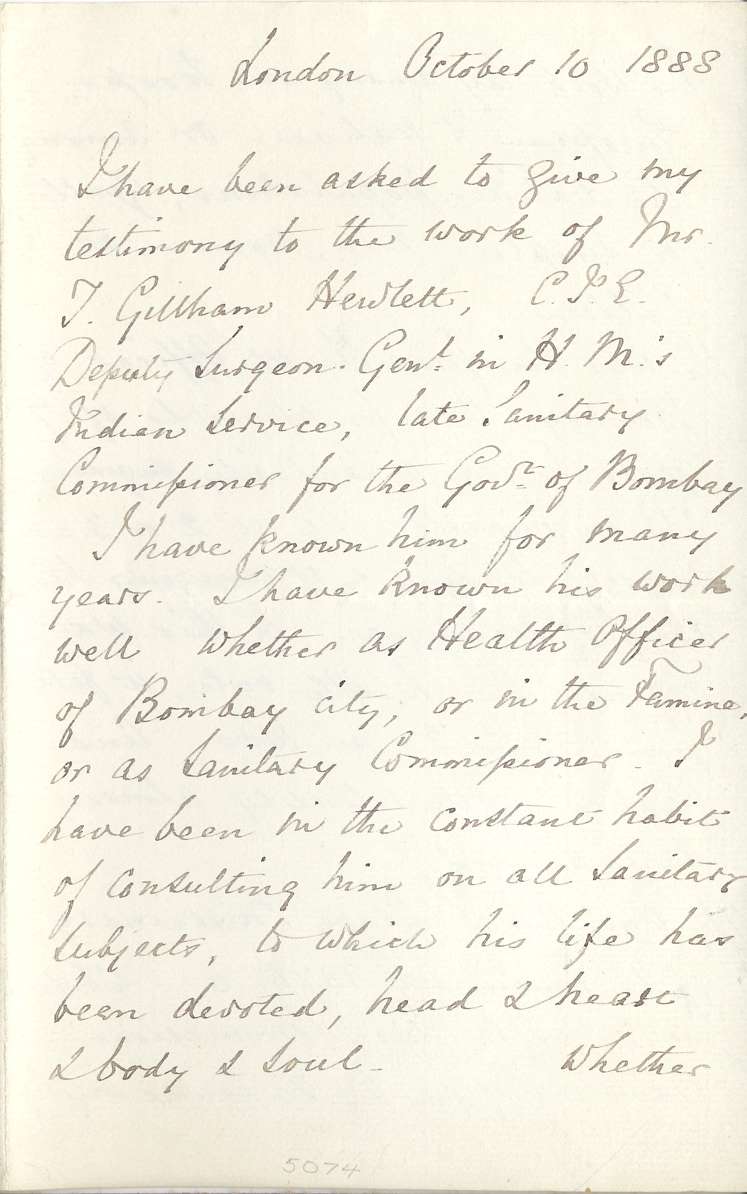 London October 10 1888
I have been asked to give my
testimony to the work of Mr.
T. Gillham Hewlett, C.I.E.
Deputy Surgeon-Genl. in H.M.'s
Indian Service, late Sanitary
Commissioner for the Govt. of Bombay
I have known him for many
years. I have known his work
well whether as Health Officer
of Bombay city, or in the Famine,
or as Sanitary Commissioner. I
have been in the constant habit
of consulting him on all Sanitary
subjects, to which his life has
been devoted, head & heart
& body & soul - Whether
5074